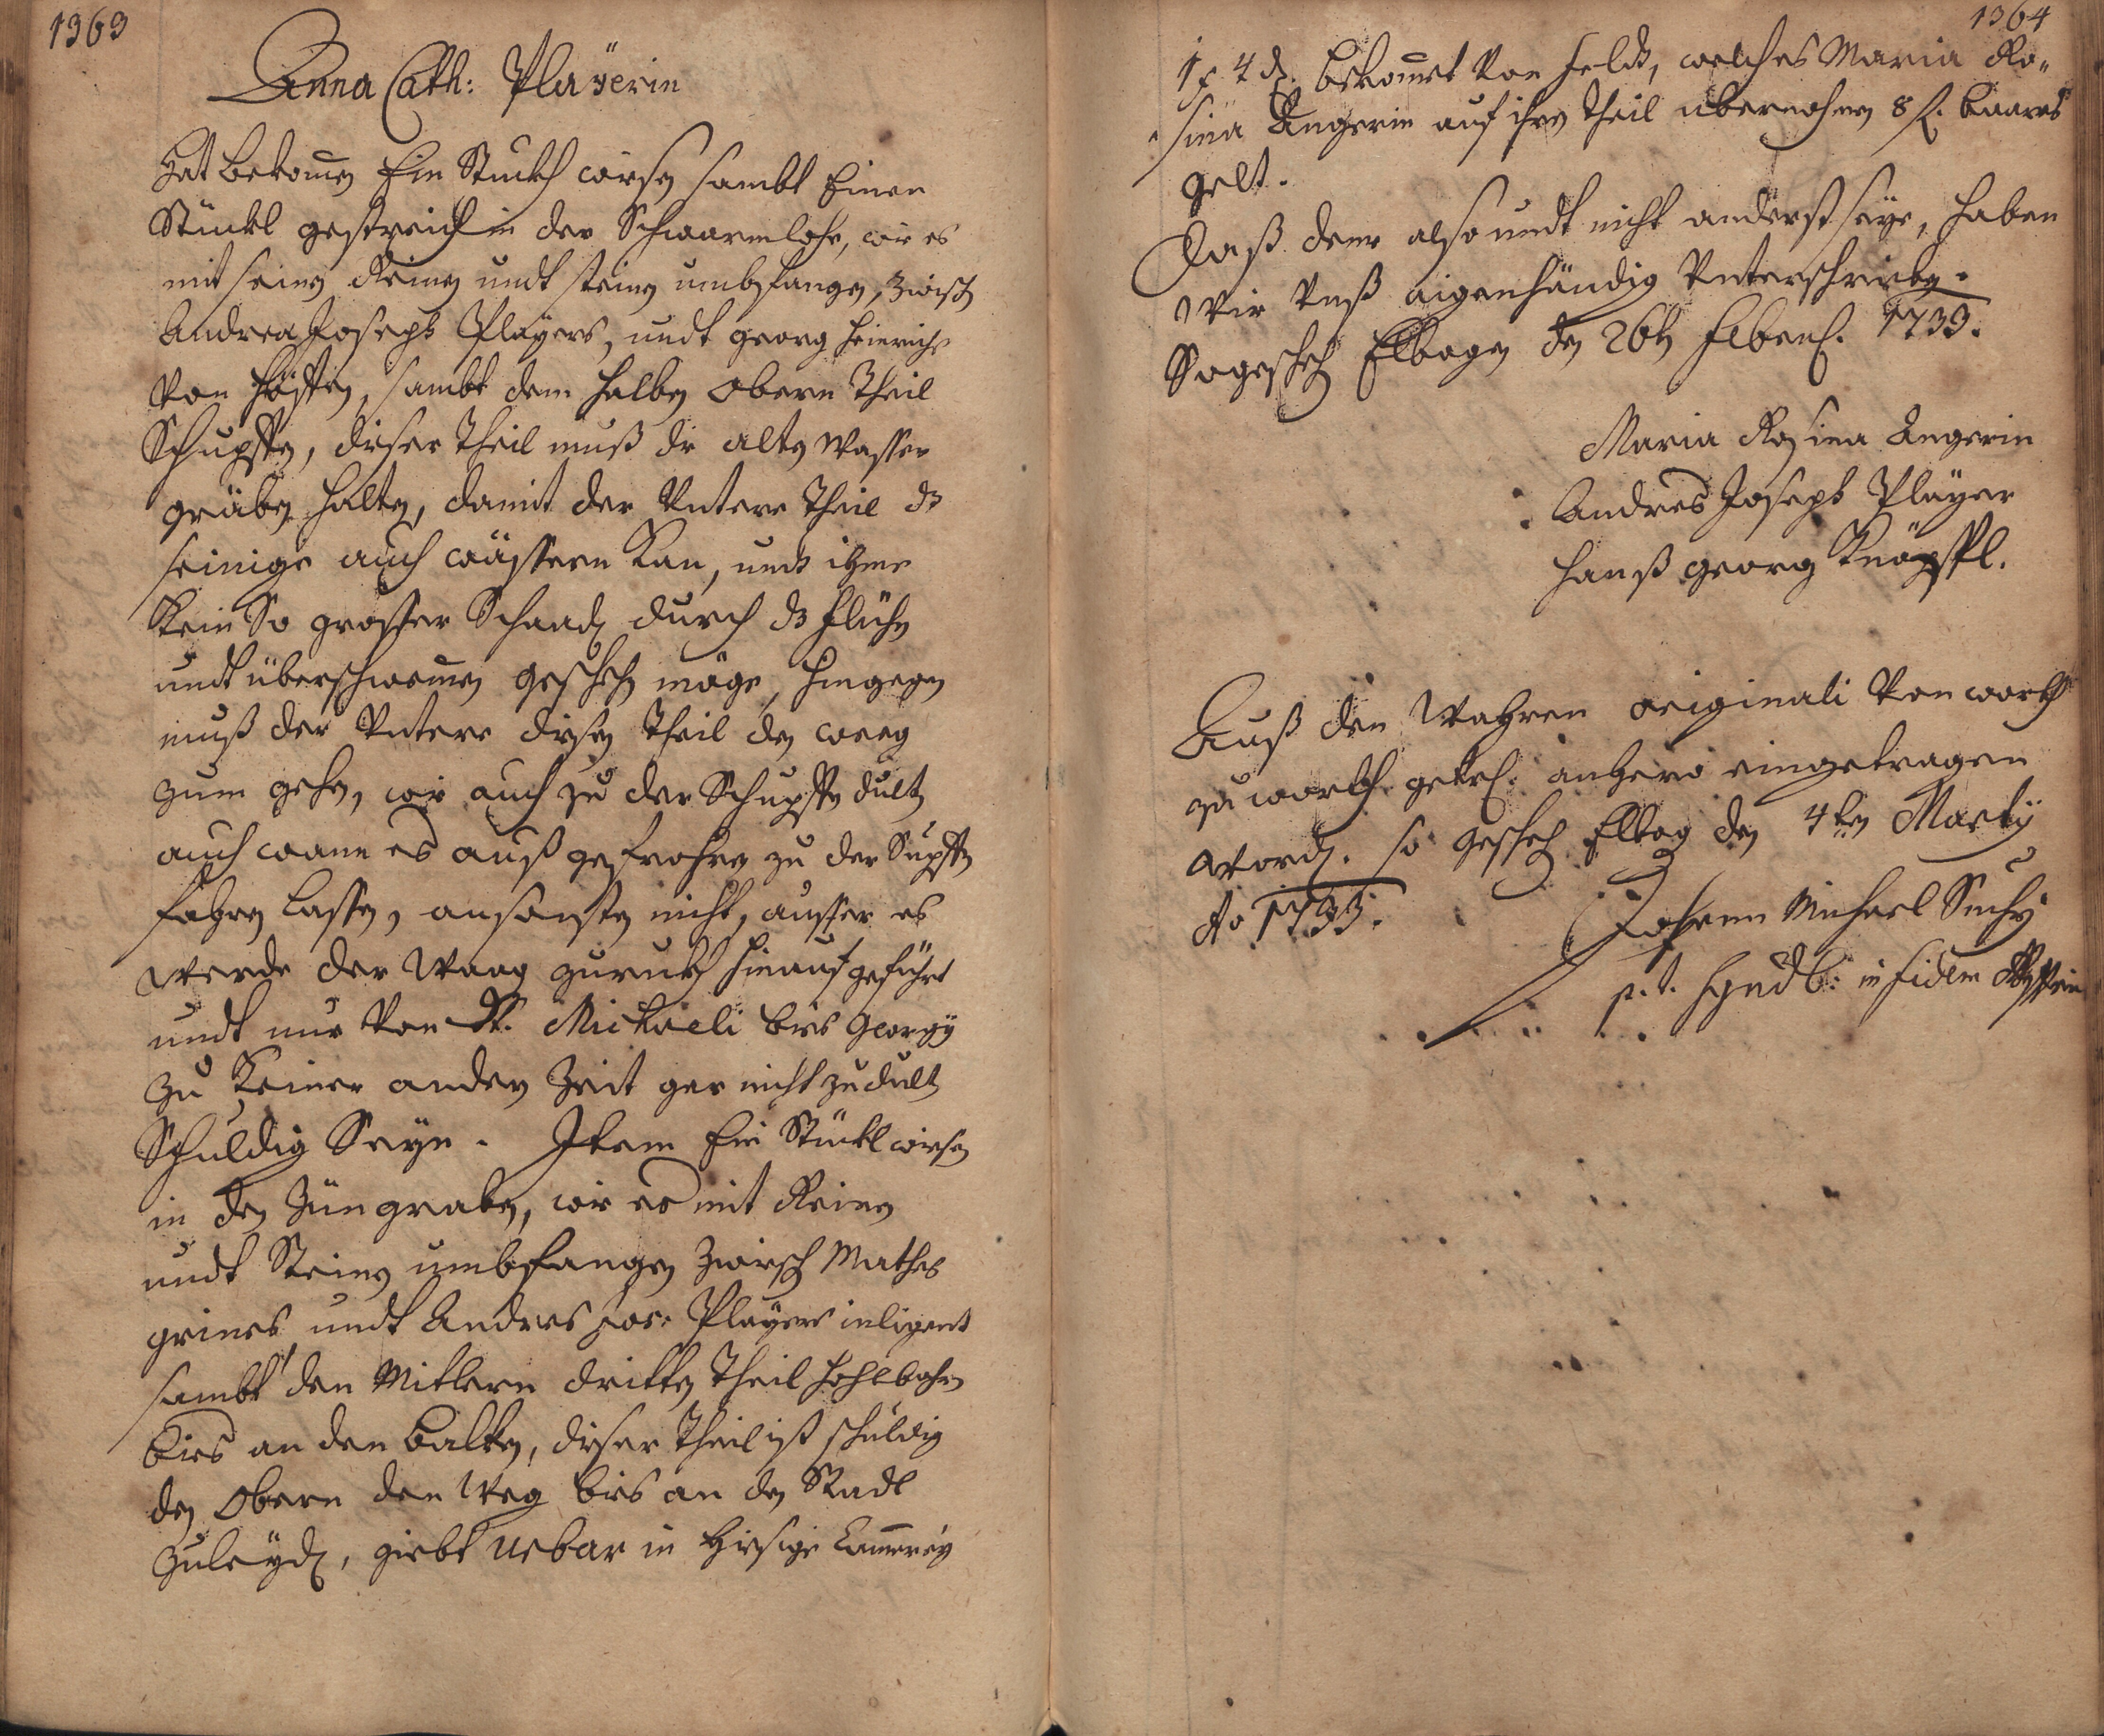 1363
Anna Cath: Plaÿerin
Hat bekom̄en Ein Stuckh wiesen sambt Einen
Stückl gestreich in der Schwarmlohe, wie es
mit seinen Reinen undt steinen umbfangen, zwischen
Andrea Joseph Players, undt georg Heinrichs
von Höffen, sambt dem halben Obern Theil
Schupffen, dieser Theil muß die alten wasser
gräben halten, damit der Untere Theil dz
seinige auch wässern kan, undt ihme
kein So grosser Schaaden durch dz
undt überschwem̄en geschehen möge, hingegen
muß der Untere diesen Theil den weeg
zum gehen, wie auch zu der Schupffen dulten
auch wann es auß gefrohren zu der Supffen
fahren lassen, ansonsten nicht, ausser es
werde der waag zuruckh hinauf geführt
undt nur von St. Michaeli bies Georgÿ
zu keiner andern Zeit gar nicht zu dulten
Schuldig Seye. Item Ein Stückl wiesen
in den Züngraben, wie es mit Reinen
undt Steinen umbfangen zwischen Mathes
grimes undt Andres Jos: Players inligent
sambt den Mitlern dritten Theil Hohlbahrn
bies an den balken, dieser Theil ist schuldig
den Obern den weg bies an den Stadl
zuleyden, giebt Urbar in hiesige Cam̄erey
1364
1 x 4 d. bekom̄et von Feldt, welches Maria Ro-
sina Ungerin auf ihren Theil übernohmen 8 f. baares
gelt.
Daß deme also undt nicht anderst seye, haben
Wir Unß aigenhändig Unterschrieben.
So geschehen Ellbogen den 26ten Febru. 1733.
Maria Rosina Ungerin
Andres Joseph Player
Hanß georg Knöpffl.
Auß den Wahren originali von worth
zu worth getrl. anhero eingetragen
worden. so geschehen Ellbog den 4ten Martÿ
Ao 1733.
Johann Michael Suchÿ
p.t. Syndb: in fidem